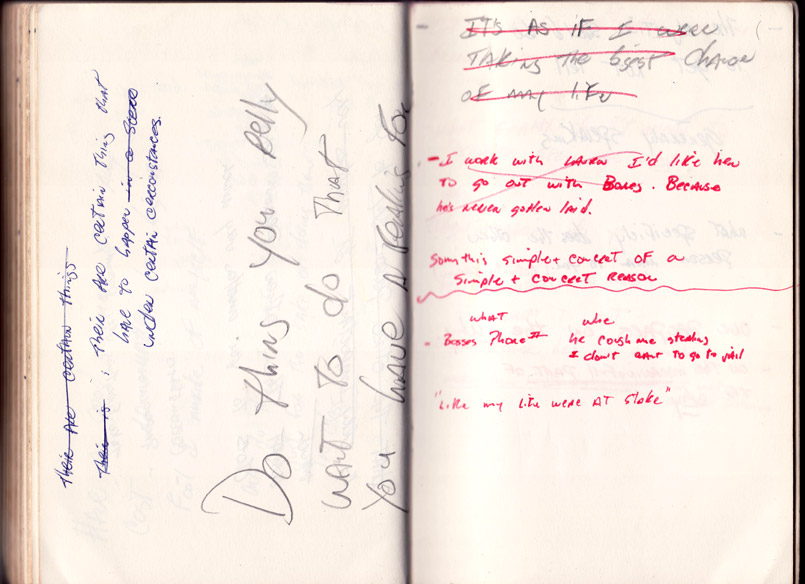 Their ARE certain things
Their is ; Their ARE certain thing that
have to happen in a scene
under certain circonstances.
Do thing you Relly
WANT TO do THAT
You HAVE A
IT'S AS IF I were
TAKING THE bigest
OF MY life
- I work with I'd like her
TO go OUT with Bones. Because
he's never gotten laid.
simple + concret OF a
Simple + concret REASON
WHAT
- Bosses Phone II he cough me stealing
I don't want to go to jail
"Like my life were AT Stake"